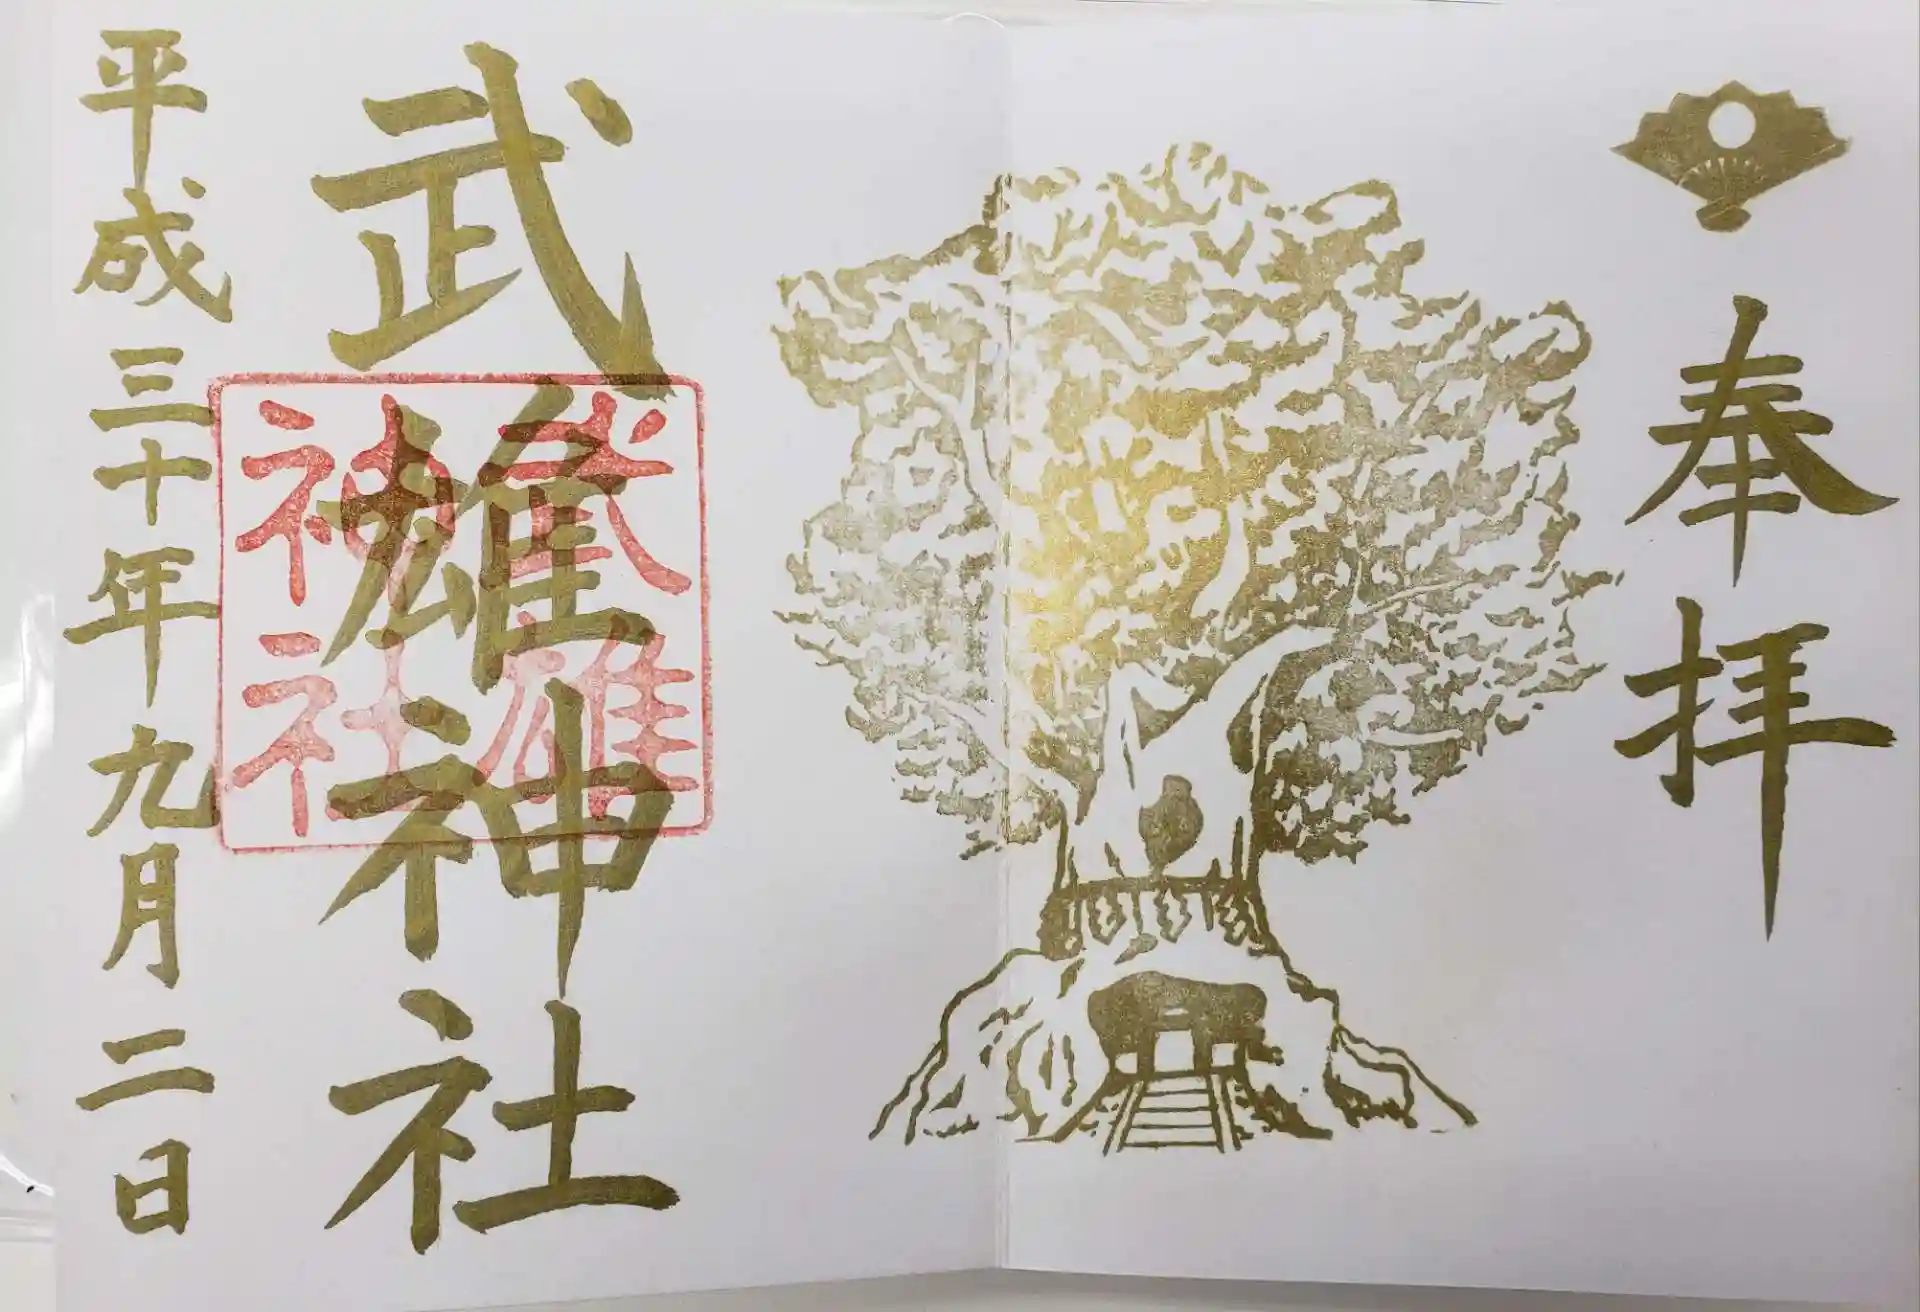 奉拝
武雄神社
武雄
神社
平成三十年九月二日